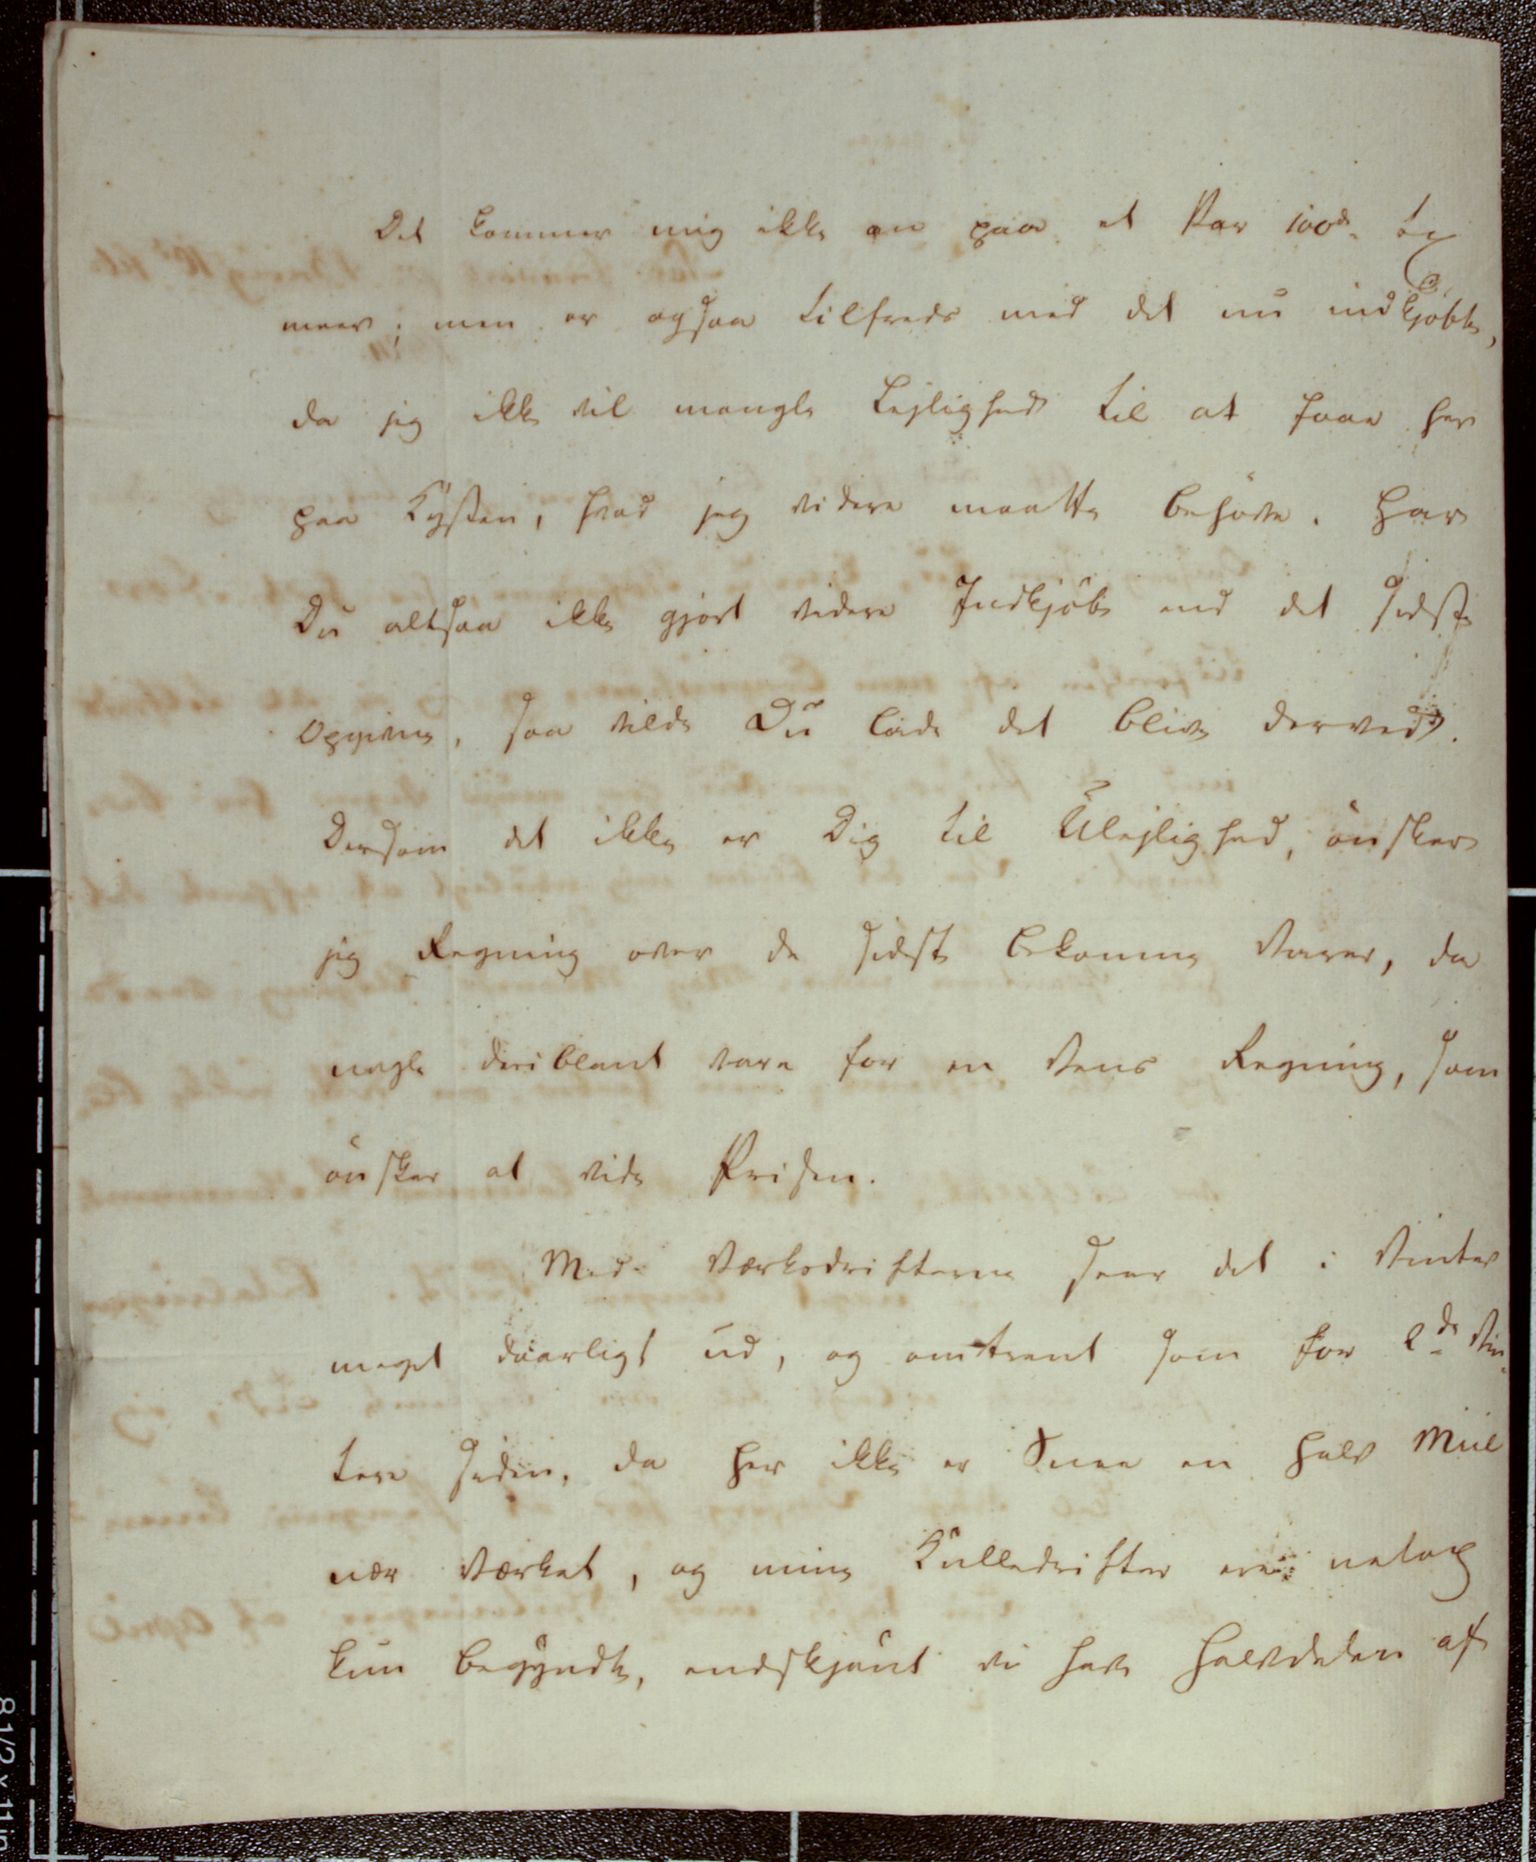 Det kommer mig ikke an paa et Par 100de Tq
meer; men er ogsaa tilfreds med det nu indkjøbte,
da jeg ikke vil mangle Lejlighed til at faae her
paa Kysten, hvad jeg videre maatte behøve. Har
Du altsaa ikke gjort videre Indkjøb end det sidst
Opgivne, saa vilde Du lade det blive derved.
Dersom det ikke er Dig til Ulejlighed, ønsker
jeg Regning over de sidst bekomne Varer, da
nogle deriblant vare for en Vens Regning, som
ønsker at vide Prisen.
Med Værksdrifterne seer det i Vinter
meget daarligt ud, og omtrent som for 2de Vin-
tere siden, da her ikke er Snee en halv Miil
nær Værket, og mine Kulledrifter ere netop
kun begyndte, endskjønt vi have Halvdelen af
8 1/2 x 11 in